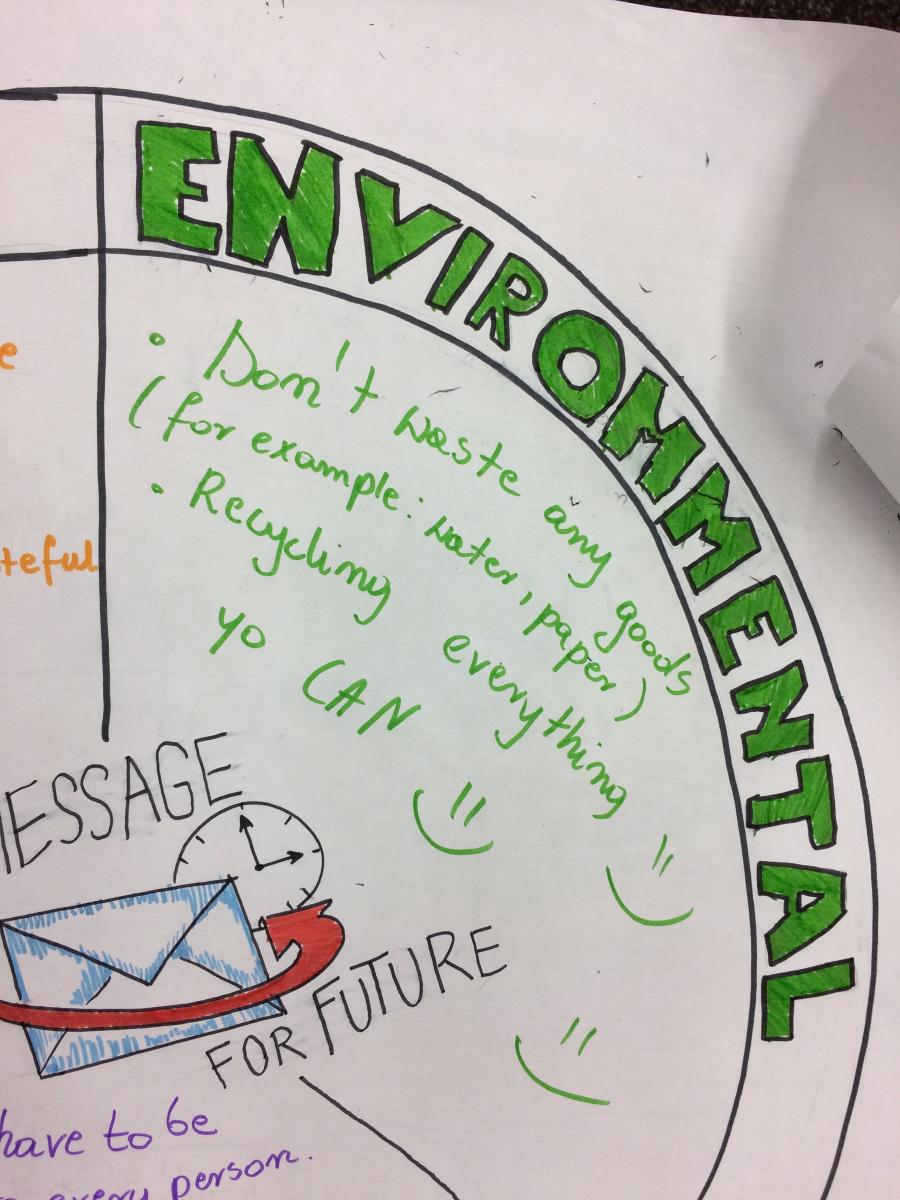 ENVIROMMENTAL
• Don't waste any goods
(for example: water, paper)
• Recycling everything
yo CAN
e
teful
MESSAGE
FOR FUTURE
have to be
every person.